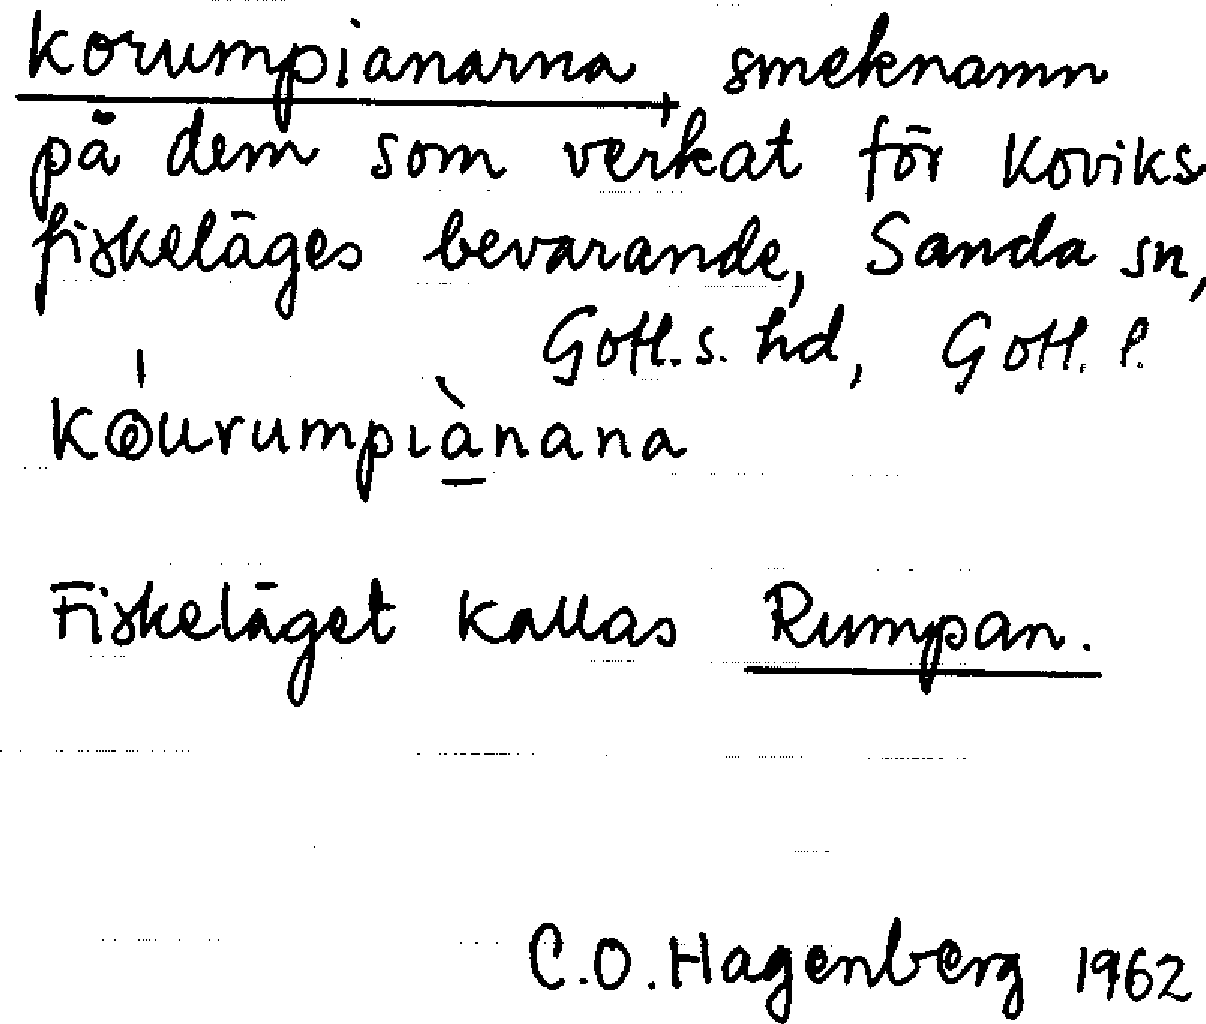 korumpianarna, smeknamn
på dem som verkat för Koviks
fiskeläges bevarande, Sanda sn,
Gotl. s. hd, Gotl. l.
kωurumpıànana
Fiskeläget kallas Rumpan.
C.O. Hagenberg 1962